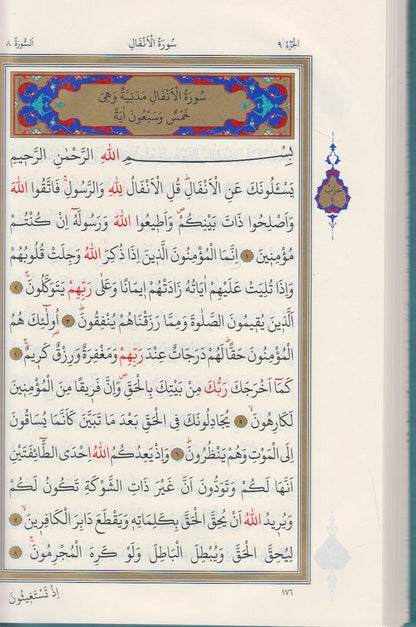 الجزء ٩ سورة الأنفال السورة ٨
سُورَةُ الْاَنْفَالِ مَدَنِيَّةٌ وَهِيَ
خَمْسٌ وَسَبْعُونَ اٰيَةً
بِسْمِ اللّٰهِ الرَّحْمٰنِ الرَّحِيمِ
يَسْـَٔلُونَكَ عَنِ الْاَنْفَالِۜ قُلِ الْاَنْفَالُ لِلّٰهِ وَالرَّسُولِۚ فَاتَّقُوا اللّٰهَ
وَاَصْلِحُوا ذَاتَ بَيْنِكُمْۖ وَاَطِيعُوا اللّٰهَ وَرَسُولَهُٓ اِنْ كُنْتُمْ
مُؤْمِنِينَ ١ اِنَّمَا الْمُؤْمِنُونَ الَّذِينَ اِذَا ذُكِرَ اللّٰهُ وَجِلَتْ قُلُوبُهُمْ
وَاِذَا تُلِيَتْ عَلَيْهِمْ اٰيَاتُهُ زَادَتْهُمْ اِيمَانًا وَعَلٰى رَبِّهِمْ يَتَوَكَّلُونَۚ ٢
اَلَّذِينَ يُقِيمُونَ الصَّلٰوةَ وَمِمَّا رَزَقْنَاهُمْ يُنْفِقُونَۜ ٣ اُو۬لٰٓئِكَ هُمُ
الْمُؤْمِنُونَ حَقًّاۜ لَهُمْ دَرَجَاتٌ عِنْدَ رَبِّهِمْ وَمَغْفِرَةٌ وَرِزْقٌ كَرِيمٌۚ ٤
كَمَٓا اَخْرَجَكَ رَبُّكَ مِنْ بَيْتِكَ بِالْحَقِّۖ وَاِنَّ فَرِيقًا مِنَ الْمُؤْمِنِينَ
لَكَارِهُونَۙ ٥ يُجَادِلُونَكَ فِي الْحَقِّ بَعْدَ مَا تَبَيَّنَ كَاَنَّمَا يُسَاقُونَ
اِلَى الْمَوْتِ وَهُمْ يَنْظُرُونَۜ ٦ وَاِذْ يَعِدُكُمُ اللّٰهُ اِحْدَى الطَّٓائِفَتَيْنِ
اَنَّهَا لَكُمْ وَتَوَدُّونَ اَنَّ غَيْرَ ذَاتِ الشَّوْكَةِ تَكُونُ لَكُمْ
وَيُرِيدُ اللّٰهُ اَنْ يُحِقَّ الْحَقَّ بِكَلِمَاتِهِ وَيَقْطَعَ دَابِرَ الْكَافِرِينَۙ ٧
لِيُحِقَّ الْحَقَّ وَيُبْطِلَ الْبَاطِلَ وَلَوْ كَرِهَ الْمُجْرِمُونَۚ ٨
١٧٦
اِذْ تَسْتَغِيثُونَ